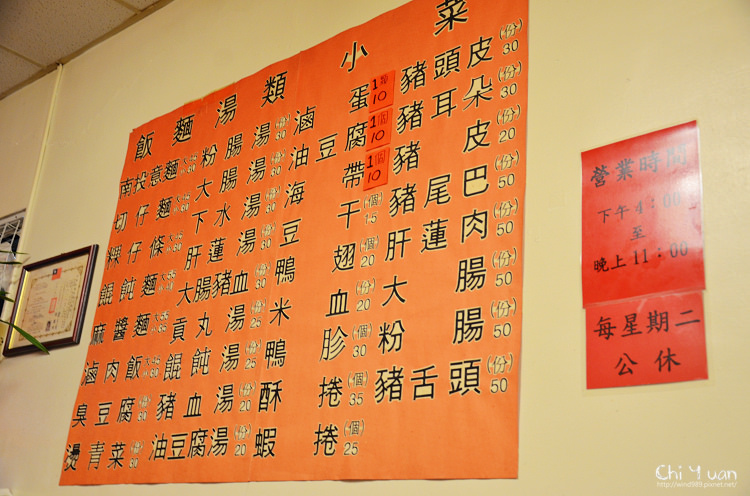 飯麵湯類 小菜
南投意麵
切仔麵
粿仔條
餛飩麵
麻醬麵
滷肉飯
臭豆腐(份)30
燙青菜(份)30
粉腸湯(份)30
大腸湯(份)30
下水湯(份)30
肝蓮湯(份)30
大腸豬血(份)30
貢丸湯(份)25
餛飩湯(份)25
豬血湯(份)20
油豆腐湯(份)20
滷蛋1顆10
油豆腐1個10
海帶1個10
豆干(個)15
鴨翅(個)20
米血(份)20
鴨胗(個)30
酥捲(個)35
蝦捲(個)25
豬頭皮(份)30
豬耳朵(份)30
豬皮(份)20
豬尾巴(份)50
肝蓮肉(份)50
大腸(份)50
粉腸(份)50
豬舌頭(份)50
營業時間
下午4:00
至
晚上11:00
每星期二
公休
Chi Yuan
http://wind589.pixnet.net/